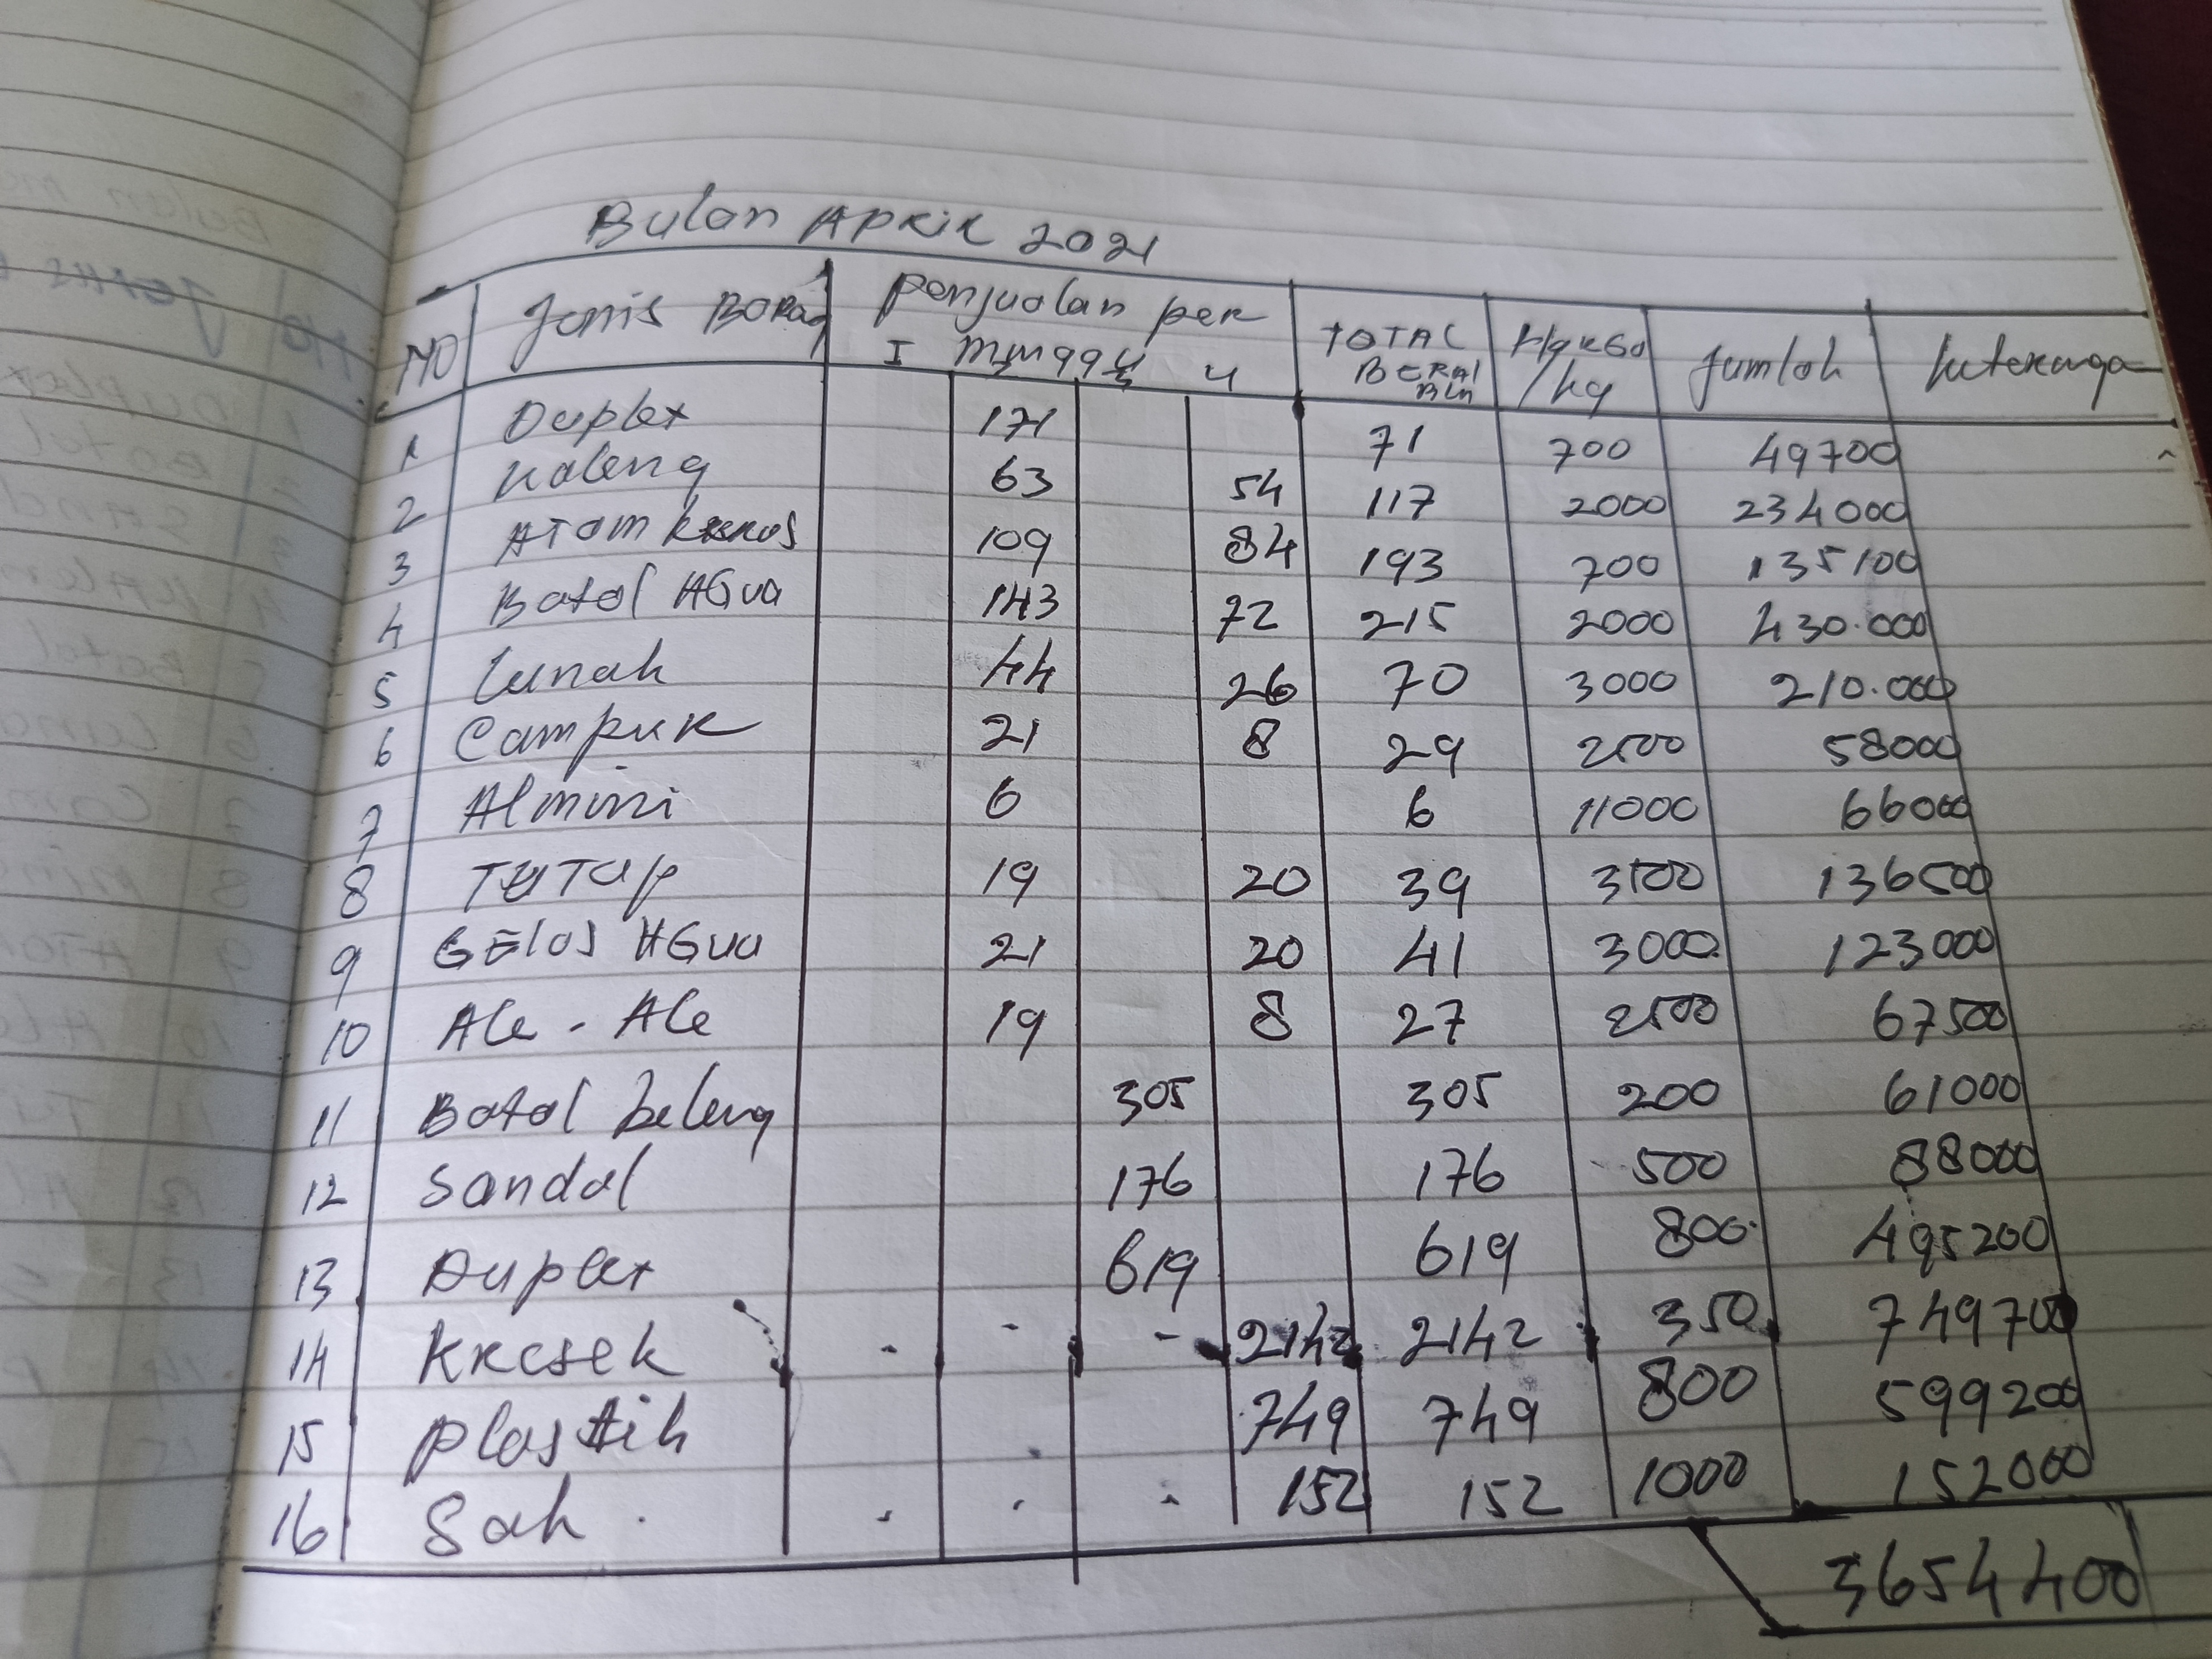 Bulan APRIL 2021
NO Jenis Barag Penjualan per Minggu TOTAL BERAT BLN Harga /kg Jumlah keteranga
I 4
1 Duplex 171 71 700 49700
2 Kaleng 63 54 117 2000 234000
3 ATOM 109 84 193 700 135100
4 Botol AGua 143 72 215 2000 430.000
5 Lunak 44 26 70 3000 210.000
6 Campur 21 8 29 2500 58000
7 Almini 6 6 11000 66000
8 TUTUP 19 20 39 3500 136500
9 GELas AGua 21 20 41 3000 123000
10 Ale - Ale 19 8 27 2500 67500
11 Botol beleng 305 305 200 61000
12 Sandal 176 176 500 88000
13 Duplex 619 619 800 495200
14 Kresek - - - 2142 2142 350 749700
15 Plastik 749 749 800 599200
16 Sak 152 152 1000 152000
3654400